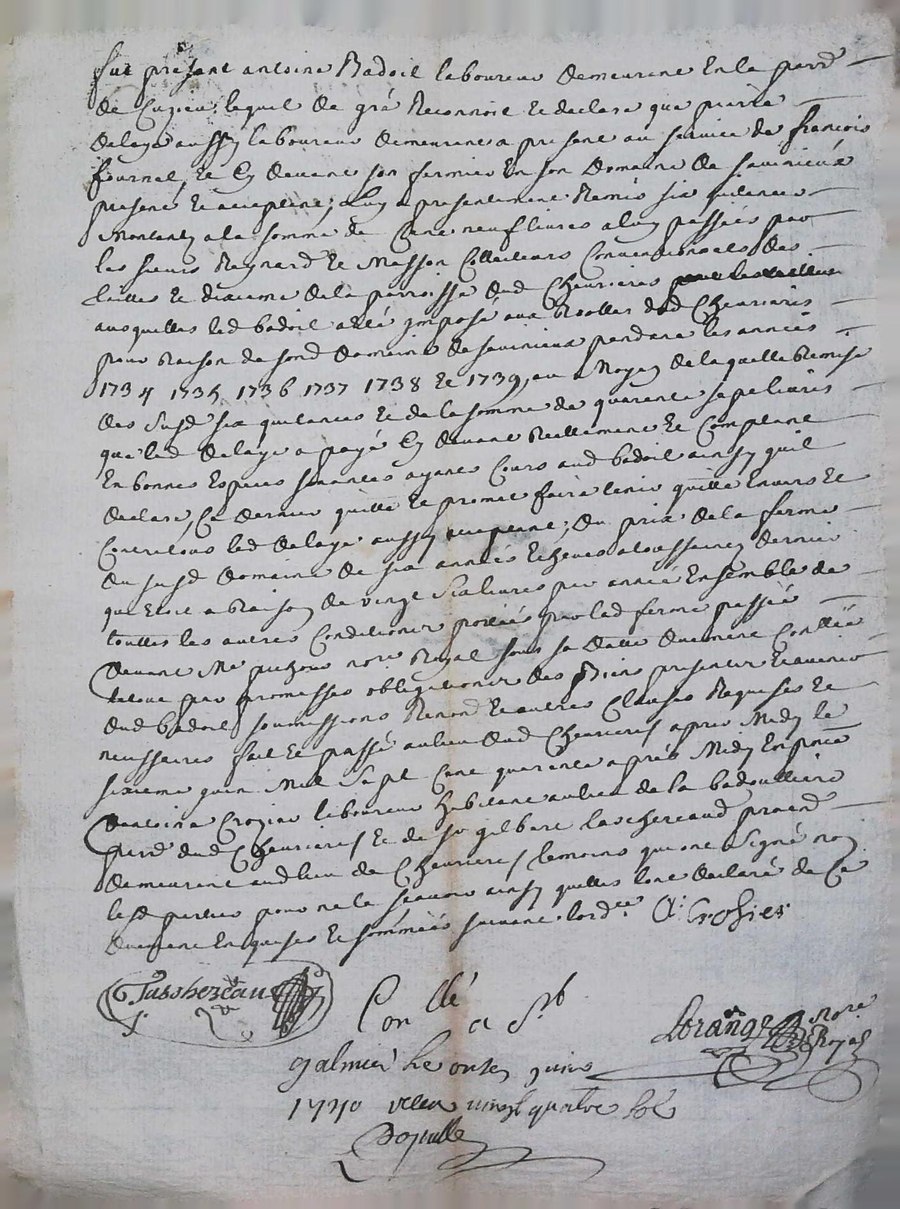 fut présant antoine Badoil laboureur demeurant en la parr
de Cuzieu, lequel de gré Reconnoit et declare que pierre
delaye aussy laboureur demeurant a présent au service de françois
fournel, et cy devant son fermier en son domaine de savinieux
présent et acceptant; luy a presentement Remis six quitances
montantz a la somme de cent neuf livres a luy passées par
les sieurs Reynard et Masson Collecteurs Conventionnels des
tailles et dixieme de la parroisse dud Chevrieres
auxquelles led badoil a été imposé aux Rolles dud Chevrieres
pour Raison de sond domaine de savinieux pendant les années
1734 1735 1736 1737 1738 et 1739, au moyen de laquelle Remise
des susd six quitances et de la somme de quarante sept livres
que led delaye a payé cy devant Reellement et Comptant
en bonnes especes sonantes ayants Cours aud badoil ainsy quil
declare, Ce dernier quitte et promet faire tenir quitte envers et
Contre tous led delaye aussy acceptant; du prix de la ferme
du susd domaine de six années echeues a la toussaintz dernier
que etoit a Raison de vingt six livres par année Ensemble de
touttes les autres Conditions portées par lad ferme passée
devant Me notre Royal sous sa datte duement Contllée
le tout par promesses obligations des Biens presents et avenir
dud badoil soumissions Renond et autres Clauses Requises et
necessaires fait et passé au lieu dud Chevrieres apres Midy le
sixieme juin Mil sept cent quarante après Midy En pnce
d'antoine Crozier laboureur habitant au lieu de la badoulliere
parr dud Chevrieres et de sr gilbert Taschereaud
demeurant aud lieu de Chevrieres temoins qui ont signé non
lesd parties pour ne le scavoir ainsy quelles l'ont declaré de Ce
duement Enquises et sommées suivant lordce A: Crosier
Taschereau
Con llé
a St
Lorange notre Royal
galmier Le onze juin
1740 Reçu vingt quatre sols